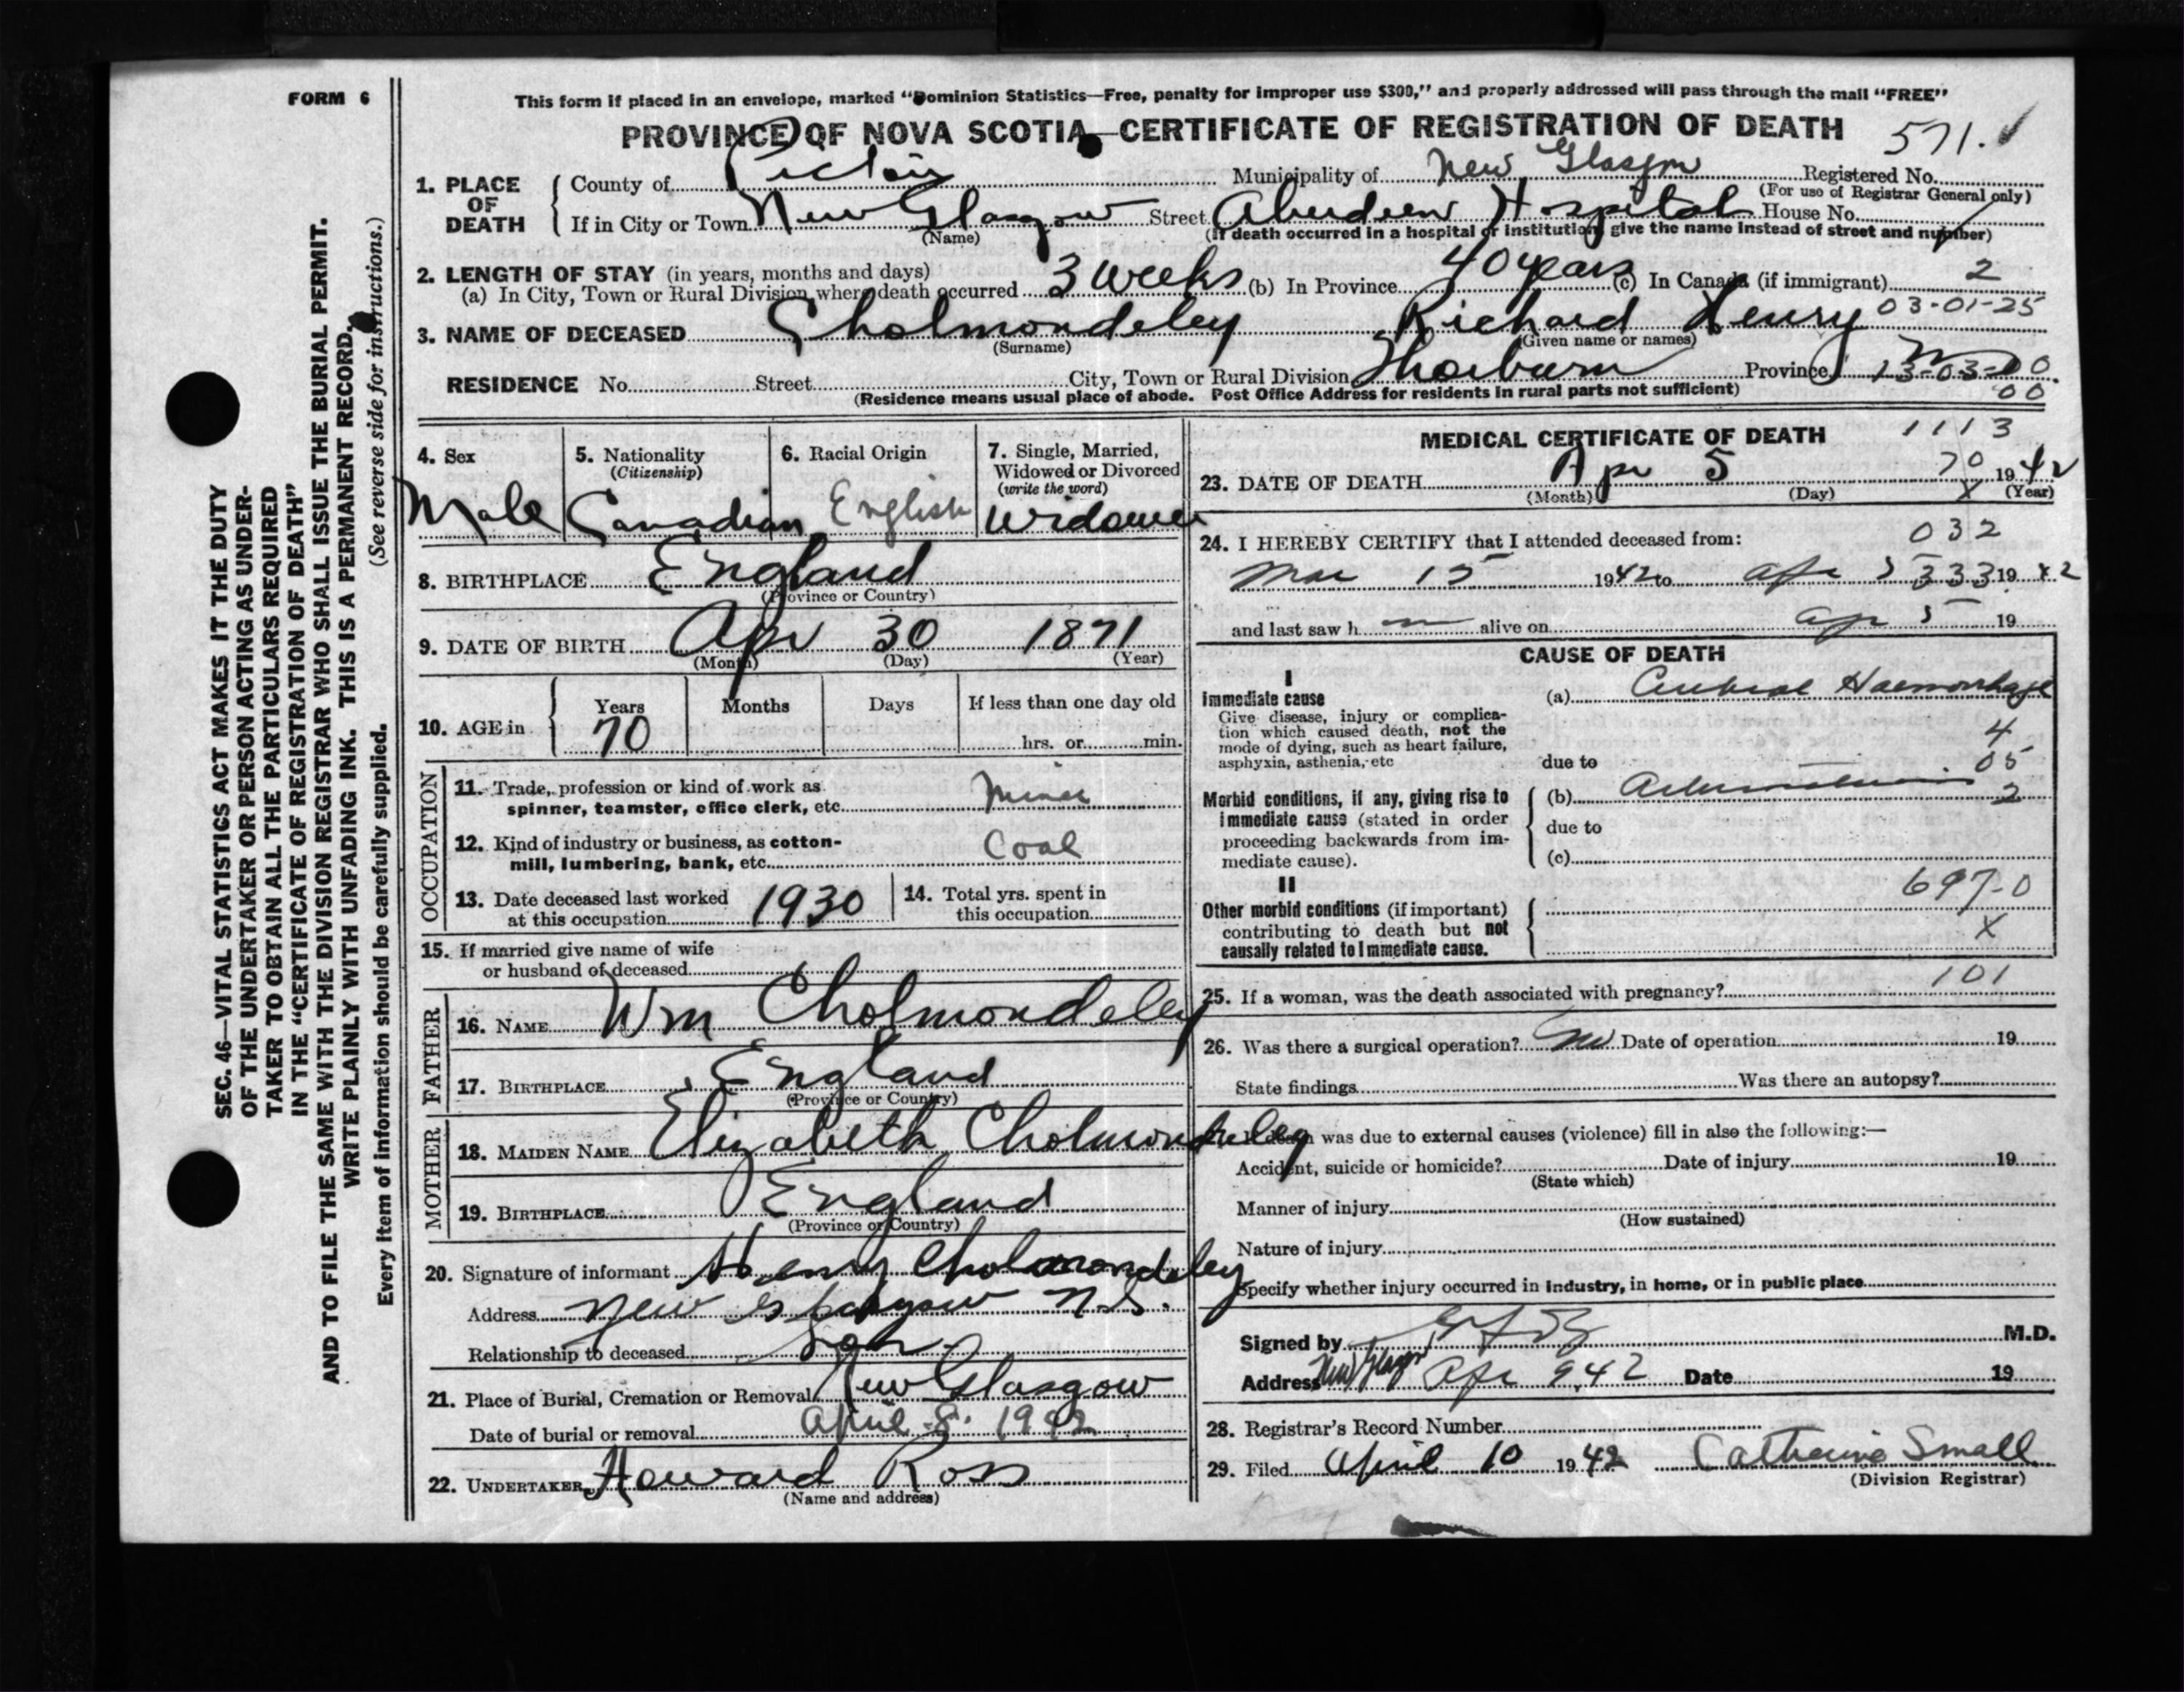 FORM 6
This form if placed in an envelope, marked “Dominion Statistics—Free, penalty for improper use $300,” and properly addressed will pass through the mail “FREE”
PROVINCE OF NOVA SCOTIA—CERTIFICATE OF REGISTRATION OF DEATH 571.
1. PLACE OF DEATH
County of Pictou Municipality of New Glasgow Registered No.
(For use of Registrar General only)
If in City or Town New Glasgow Street Aberdeen Hospital House No.
(Name) (If death occurred in a hospital or institution, give the name instead of street and number)
2. LENGTH OF STAY (in years, months and days)
(a) In City, Town or Rural Division where death occurred 3 weeks (b) In Province 40 years (c) In Canada (if immigrant) 2
3. NAME OF DECEASED Cholmondeley Richard Henry 03-01-25
(Surname) (Given name or names)
RESIDENCE No. Street City, Town or Rural Division Thorburn Province 13-03-00
00
(Residence means usual place of abode. Post Office Address for residents in rural parts not sufficient)
SEC. 46—VITAL STATISTICS ACT MAKES IT THE DUTY
OF THE UNDERTAKER OR PERSON ACTING AS UNDER-
TAKER TO OBTAIN ALL THE PARTICULARS REQUIRED
IN THE “CERTIFICATE OF REGISTRATION OF DEATH”
AND TO FILE THE SAME WITH THE DIVISION REGISTRAR WHO SHALL ISSUE THE BURIAL PERMIT.
WRITE PLAINLY WITH UNFADING INK. THIS IS A PERMANENT RECORD.
(See reverse side for instructions.)
Every item of information should be carefully supplied.
4. Sex
Male
5. Nationality
(Citizenship)
Canadian
6. Racial Origin
English
7. Single, Married,
Widowed or Divorced
(write the word)
Widower
8. BIRTHPLACE England
(Province or Country)
9. DATE OF BIRTH Apr 30 1871
(Month) (Day) (Year)
10. AGE in
Years Months Days If less than one day old
70 hrs. or min.
OCCUPATION
11. Trade, profession or kind of work as
spinner, teamster, office clerk, etc. Miner
12. Kind of industry or business, as cotton-
mill, lumbering, bank, etc. Coal
13. Date deceased last worked
at this occupation 1930
14. Total yrs. spent in
this occupation
15. If married give name of wife
or husband of deceased
FATHER
16. NAME Wm Cholmondeley
17. BIRTHPLACE England
(Province or Country)
MOTHER
18. MAIDEN NAME Elizabeth Cholmondeley
19. BIRTHPLACE England
(Province or Country)
20. Signature of informant Henry Cholmondeley
Address New Glasgow N.S.
Relationship to deceased Son
21. Place of Burial, Cremation or Removal New Glasgow
Date of burial or removal April 8. 1942
22. UNDERTAKER Howard Ross
(Name and address)
MEDICAL CERTIFICATE OF DEATH 1113
70
23. DATE OF DEATH Apr 5 1942
(Month) (Day) X (Year)
24. I HEREBY CERTIFY that I attended deceased from: 032
Mar 15 1942 to Apr 5 333 19 42
and last saw h m alive on Apr 5 19
CAUSE OF DEATH
I
Immediate cause
Give disease, injury or complica-
tion which caused death, not the
mode of dying, such as heart failure,
asphyxia, asthenia, etc
(a) Cerebral Haemorrhage
4
due to 05
Morbid conditions, if any, giving rise to
immediate cause (stated in order
proceeding backwards from im-
mediate cause).
(b) 2
due to
(c)
II
Other morbid conditions (if important)
contributing to death but not
causally related to immediate cause.
697-0
X
101
25. If a woman, was the death associated with pregnancy?
26. Was there a surgical operation? No Date of operation 19
State findings Was there an autopsy?
was due to external causes (violence) fill in also the following:—
Accident, suicide or homicide? Date of injury 19
(State which)
Manner of injury
(How sustained)
Nature of injury
Specify whether injury occurred in industry, in home, or in public place
Signed by M.D.
Address New Glasgow Apr 9.42 Date 19
28. Registrar’s Record Number
29. Filed April 10 1942 Catherine Small
(Division Registrar)